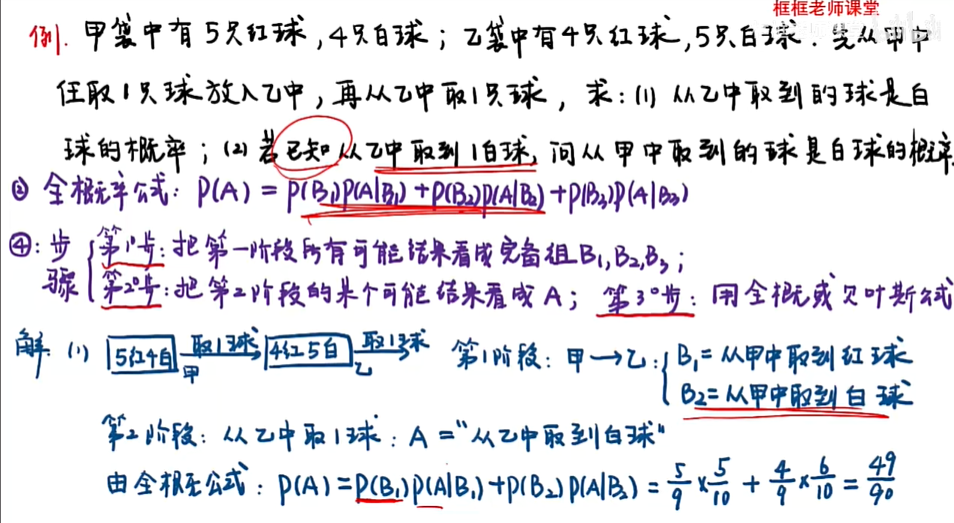 框框老师课堂
例. 甲袋中有5只红球,4只白球;乙袋中有4只红球,5只白球.先从甲中
任取1只球放入乙中,再从乙中取1只球,求:(1)从乙中取到的球是白
球的概率;(2)若已知从乙中取到1白球,问从甲中取到的球是白球的概率.
③ 全概率公式: P(A) = P(B₁)P(A|B₁)+P(B₂)P(A|B₂)+P(B₃)P(A|B₃)
④: 步骤 { 第1°步: 把第一阶段所有可能结果看成完备组B₁,B₂,B₃;
第2°步: 把第2阶段的某个可能结果看成A; 第3°步: 用全概或贝叶斯公式
解: (1) 5红4白 取1球 甲 → 4红5白 取1球 乙 → 第1阶段: 甲→乙: { B₁=从甲中取到红球
B₂=从甲中取到白球
第2阶段: 从乙中取1球: A="从乙中取到白球"
由全概率公式: P(A)=P(B₁)P(A|B₁)+P(B₂)P(A|B₂)=5/9×5/10+4/9×6/10=49/90